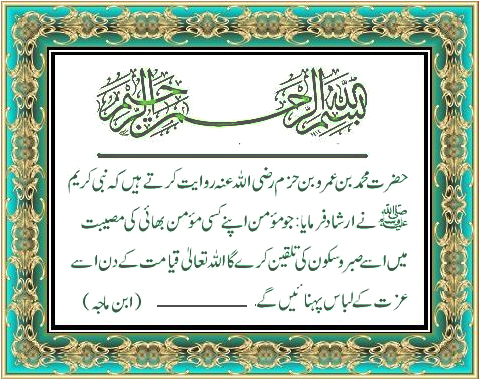 بسم الله الرحمن الرحیم
حضرت محمد بن عمرو بن حزم رضی اللہ عنہ روایت کرتے ہیں کہ نبی کریم
ﷺ نے ارشاد فرمایا: جو مؤمن اپنے کسی مؤمن بھائی کی مصیبت
میں اسے صبر و سکون کی تلقین کرے گا اللہ تعالیٰ قیامت کے دن اسے
عزت کے لباس پہنائیں گے۔ (ابن ماجہ)